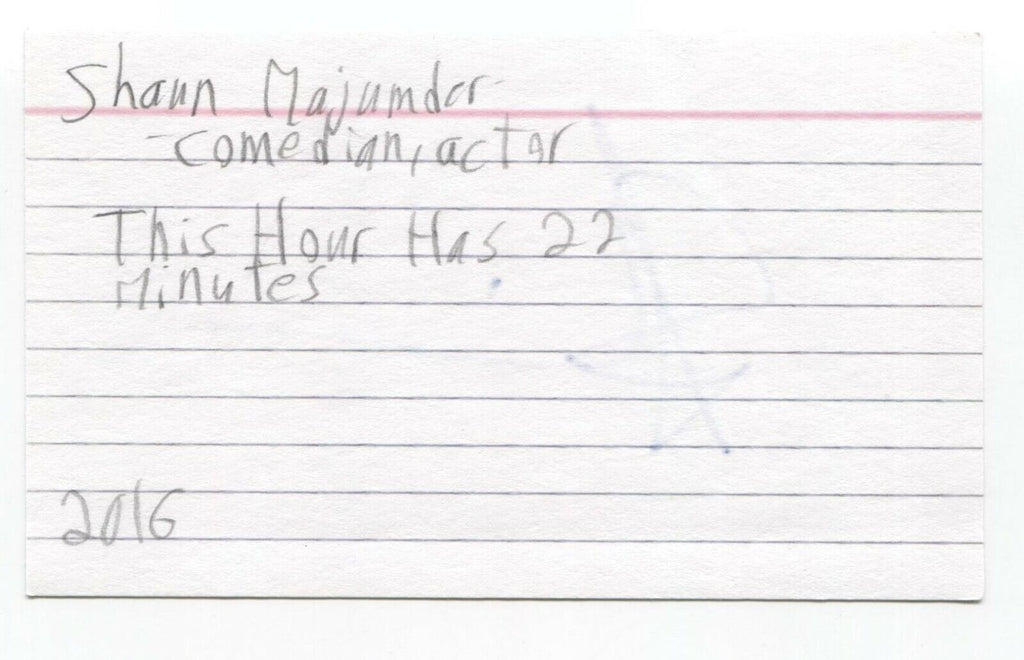 Shaun Majumder
-comedian, actor
This Hour Has 22
Minutes
2016